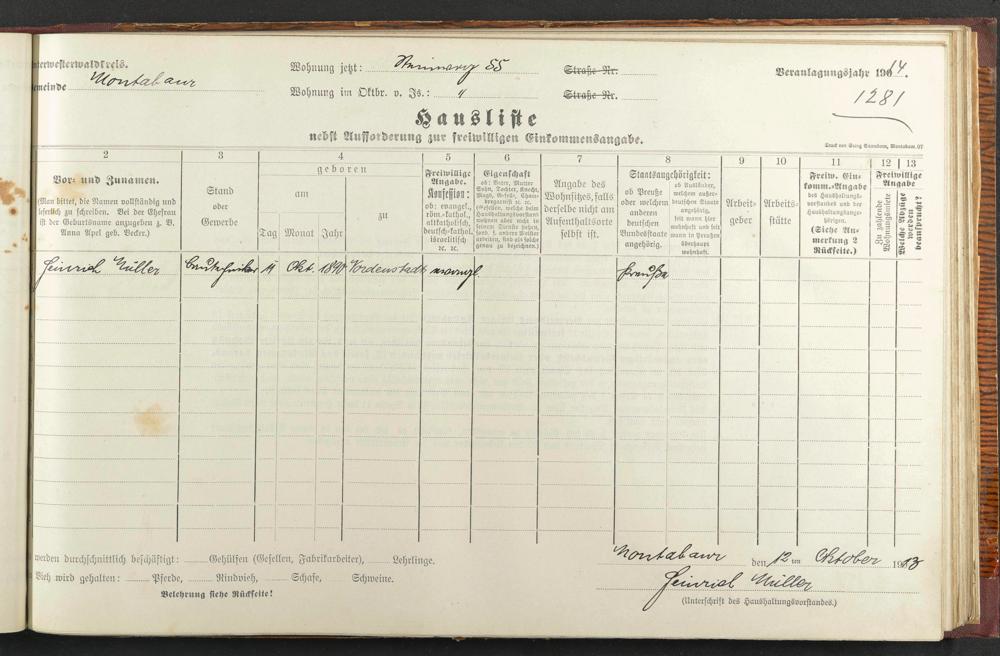 nterwesterwaldkreis.
emeinde Montabaur
Wohnung jetzt: Steinweg 55 Straße Nr.
Wohnung im Oktbr. v. Js.: " Straße Nr.
Veranlagungsjahr 1914.
1281
Hausliste
nebst Aufforderung zur freiwilligen Einkommensangabe.
2 3 4 5 6 7 8 9 10 11 12 13
Vor- und Zunamen.
(Man bittet, die Namen vollständig und
leserlich zu schreiben. Bei der Ehefrau
ist der Geburtsname anzugeben z. B.
Anna Apel geb. Becker.)
Stand
oder
Gewerbe
geboren
am
zu
Tag Monat Jahr
Freiwillige
Angabe.
Konfession:
ob: evangel.,
röm.-kathol.,
altkatholisch,
deutsch-kathol.
israelitisch
ꝛc. ꝛc.
Eigenschaft
ob: Vater, Mutter
Sohn, Tochter, Knecht,
Angabe des
Wohnsitzes, falls
derselbe nicht am
Aufenthaltsorte
selbst ist.
Staatsangehörigkeit:
ob Preuße
oder welchem
anderen
deutschen
Bundesstaate
angehörig.
ob Ausländer,
welchem außer-
deutschen Staate
angehörig,
seit wann hier
wohnhaft und seit
wann in Preußen
überhaupt
wohnhaft.
Arbeit-
geber
Arbeits-
stätte
Freiw. Ein-
komm.-Angabe
des Haushaltungs-
vorstandes und der
Haushaltungsange-
hörigen.
(Siehe An-
merkung 2
Rückseite.)
Freiwillige
Angabe
Zu zahlende
Wohnungsmiete
Welche Abzüge
werden
beansprucht?
Heinrich Müller 11 Okt. 1890 evangl. Preuße
werden durchschnittlich beschäftigt: Gehülfen (Gesellen, Fabrikarbeiter), Lehrlinge.
Vieh wird gehalten: Pferde, Rindvieh, Schafe, Schweine.
Belehrung siehe Rückseite!
Montabaur den 12 ten Oktober 1913
Heinrich Müller
(Unterschrift des Haushaltungsvorstandes.)